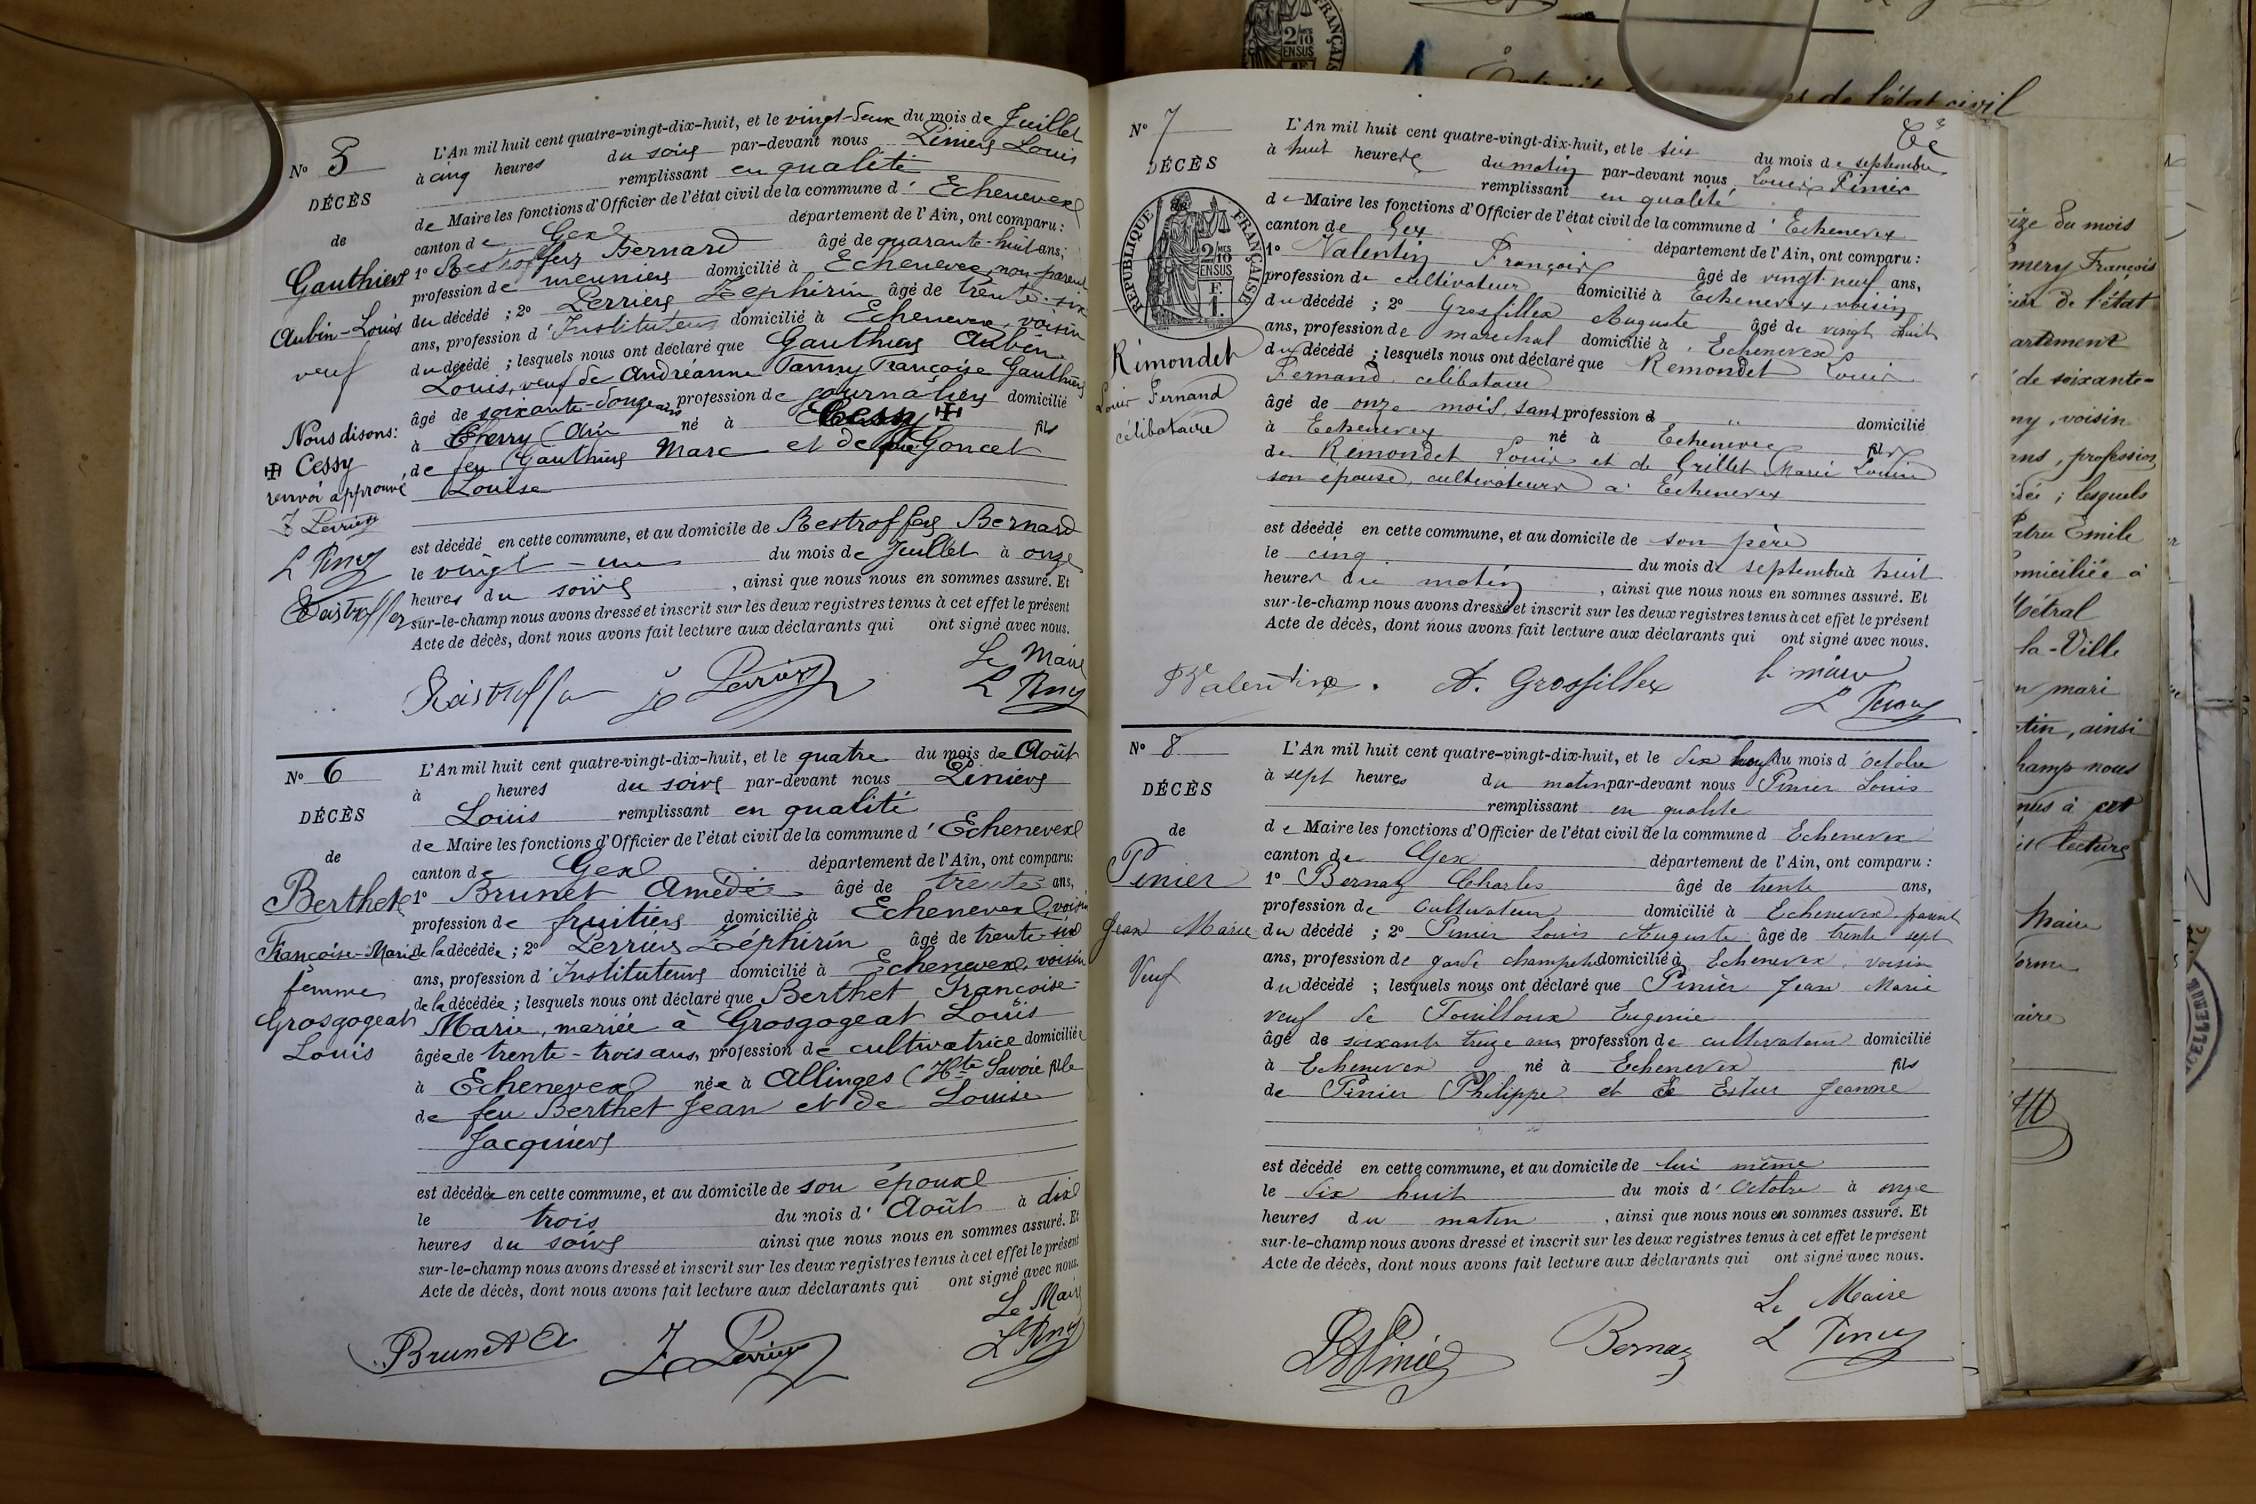 N° 5
DÉCÈS
de
Gauthier
Aubin-Louis
veuf
Nous disons:
✠ Cessy
renvoi approuvé
Z Perrier
L'An mil huit cent quatre-vingt-dix-huit, et le vingt-deux du mois de Juillet
à cinq heures du soir par-devant nous Piniers Louis
remplissant en qualité
de Maire les fonctions d'Officier de l'état civil de la commune d'Echenevex
canton de Gex département de l'Ain, ont comparu :
1° Restroffer Bernard âgé de quarante-huit ans,
profession de meunier domicilié à Echenevex, non parent
du décédé ; 2° Perrier Zéphirin âgé de trente-six
ans, profession d'Instituteur domicilié à Echenevex, voisin
du décédé ; lesquels nous ont déclaré que Gauthier Aubin
Louis, veuf de Andréanne Fanny Françoise Gauthier
âgé de soixante-douze ans profession de journalier domicilié
à Cherry (Ain né à Cessy ✠ fils
de feu Gauthier Marc et de Goncet
Louise
est décédé en cette commune, et au domicile de Restroffer Bernard
le vingt-un du mois de Juillet à onze
heures du soir , ainsi que nous nous en sommes assuré. Et
sur-le-champ nous avons dressé et inscrit sur les deux registres tenus à cet effet le présent
Acte de décès, dont nous avons fait lecture aux déclarants qui ont signé avec nous.
Le Maire
Z Perrier
N° 6
DÉCÈS
de
Berthet
Françoise-Marie
femme
Grosgogeat
Louis
L'An mil huit cent quatre-vingt-dix-huit, et le quatre du mois de Août
à heures du soir par-devant nous Piniers
Louis remplissant en qualité
de Maire les fonctions d'Officier de l'état civil de la commune d'Echenevex
canton de Gex département de l'Ain, ont comparu:
1° Brunet Amédé âgé de trente ans,
profession de fruitier domicilié à Echenevex, voisin
de la décédée ; 2° Perrier Zéphirin âgé de trente-six
ans, profession d'Instituteur domicilié à Echenevex, voisin
de la décédée ; lesquels nous ont déclaré que Berthet Françoise-
Marie, mariée à Grosgogeat Louis
âgée de trente-trois ans, profession de cultivatrice domiciliée
à Echenevex née à Allinges (Hte Savoie fille
de feu Berthet Jean et de Louise
Jacquiers
est décédée en cette commune, et au domicile de son époux
le trois du mois d'Août à dix
heures du soir ainsi que nous nous en sommes assuré. Et
sur-le-champ nous avons dressé et inscrit sur les deux registres tenus à cet effet le présent
Acte de décès, dont nous avons fait lecture aux déclarants qui ont signé avec nous.
Le Maire
Brunet A
Z Perrier
N° 7
DÉCÈS
de
RÉPUBLIQUE FRANÇAISE
2/10 EN SUS
F. 1.
Rémondet
Louis Fernand
célibataire
L'An mil huit cent quatre-vingt-dix-huit, et le six du mois de septembre
à huit heures du matin par-devant nous Louis Pinier
remplissant en qualité
de Maire les fonctions d'Officier de l'état civil de la commune d'Echenevex
canton de Gex département de l'Ain, ont comparu :
1° Valentin François âgé de vingt neuf ans,
profession de cultivateur domicilié à Echenevex, voisin
du décédé ; 2° Grosfillex Auguste âgé de vingt huit
ans, profession de maréchal domicilié à Echenevex
du décédé ; lesquels nous ont déclaré que Remondet Louis
Fernand célibataire
âgé de onze mois, sans profession d „ domicilié
à Echenevex né à Echenevex fils
de Rémondet Louis et de Grillet Marie Louise
son épouse, cultivateurs à Echenevex
est décédé en cette commune, et au domicile de son père
le cinq du mois de septembre à huit
heures du matin , ainsi que nous nous en sommes assuré. Et
sur-le-champ nous avons dressé et inscrit sur les deux registres tenus à cet effet le présent
Acte de décès, dont nous avons fait lecture aux déclarants qui ont signé avec nous.
le maire
Valentin
A. Grosfillex
N° 8
DÉCÈS
de
Pinier
Jean Marie
Veuf
L'An mil huit cent quatre-vingt-dix-huit, et le dix huit du mois d'octobre
à sept heures du matin par-devant nous Pinier Louis
remplissant en qualité
de Maire les fonctions d'Officier de l'état civil de la commune d Echenevex
canton de Gex département de l'Ain, ont comparu :
1° Bernaz Charles âgé de trente ans,
profession de cultivateur domicilié à Echenevex, parent
du décédé ; 2° Pinier Louis Auguste âgé de trente sept
ans, profession de garde champetre domicilié à Echenevex, voisin
du décédé ; lesquels nous ont déclaré que Pinier Jean Marie
veuf de Fouilloux Eugenie
âgé de soixante treize ans, profession de cultivateur domicilié
à Echenevex né à Echenevex fils
de Pinier Philippe et de Estur Jeanne
est décédé en cette commune, et au domicile de lui même
le dix huit du mois d'Octobre à onze
heures du matin , ainsi que nous nous en sommes assuré. Et
sur-le-champ nous avons dressé et inscrit sur les deux registres tenus à cet effet le présent
Acte de décès, dont nous avons fait lecture aux déclarants qui ont signé avec nous.
Le Maire
Bernaz
de l'état civil
du mois
François
de l'état
de soixante-
ny, voisin
ans, profession
; lesquels
Emile
domiciliée à
Métral
la-Ville
mari
ainsi
champ nous
à cet
lecture
Maire